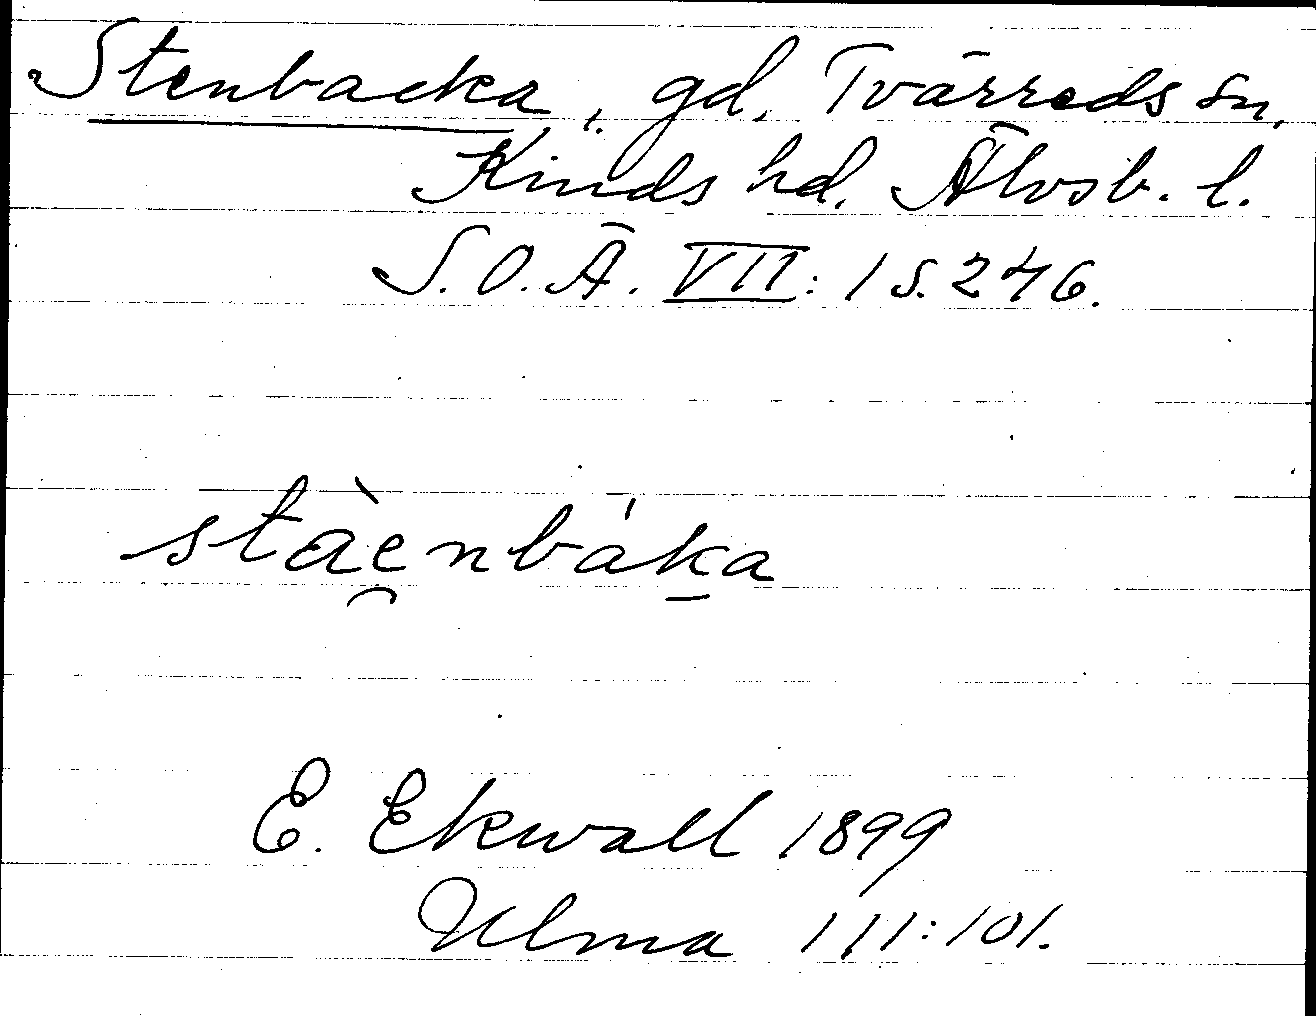 Stenbacka, gd, Tvärreds sn,
Kinds hd. Älvsb. l.
S.O.Ä. VII: 1 s. 246.
stàe̯nbák̠a
E. Ekwall 1899
Ulma 111:101.